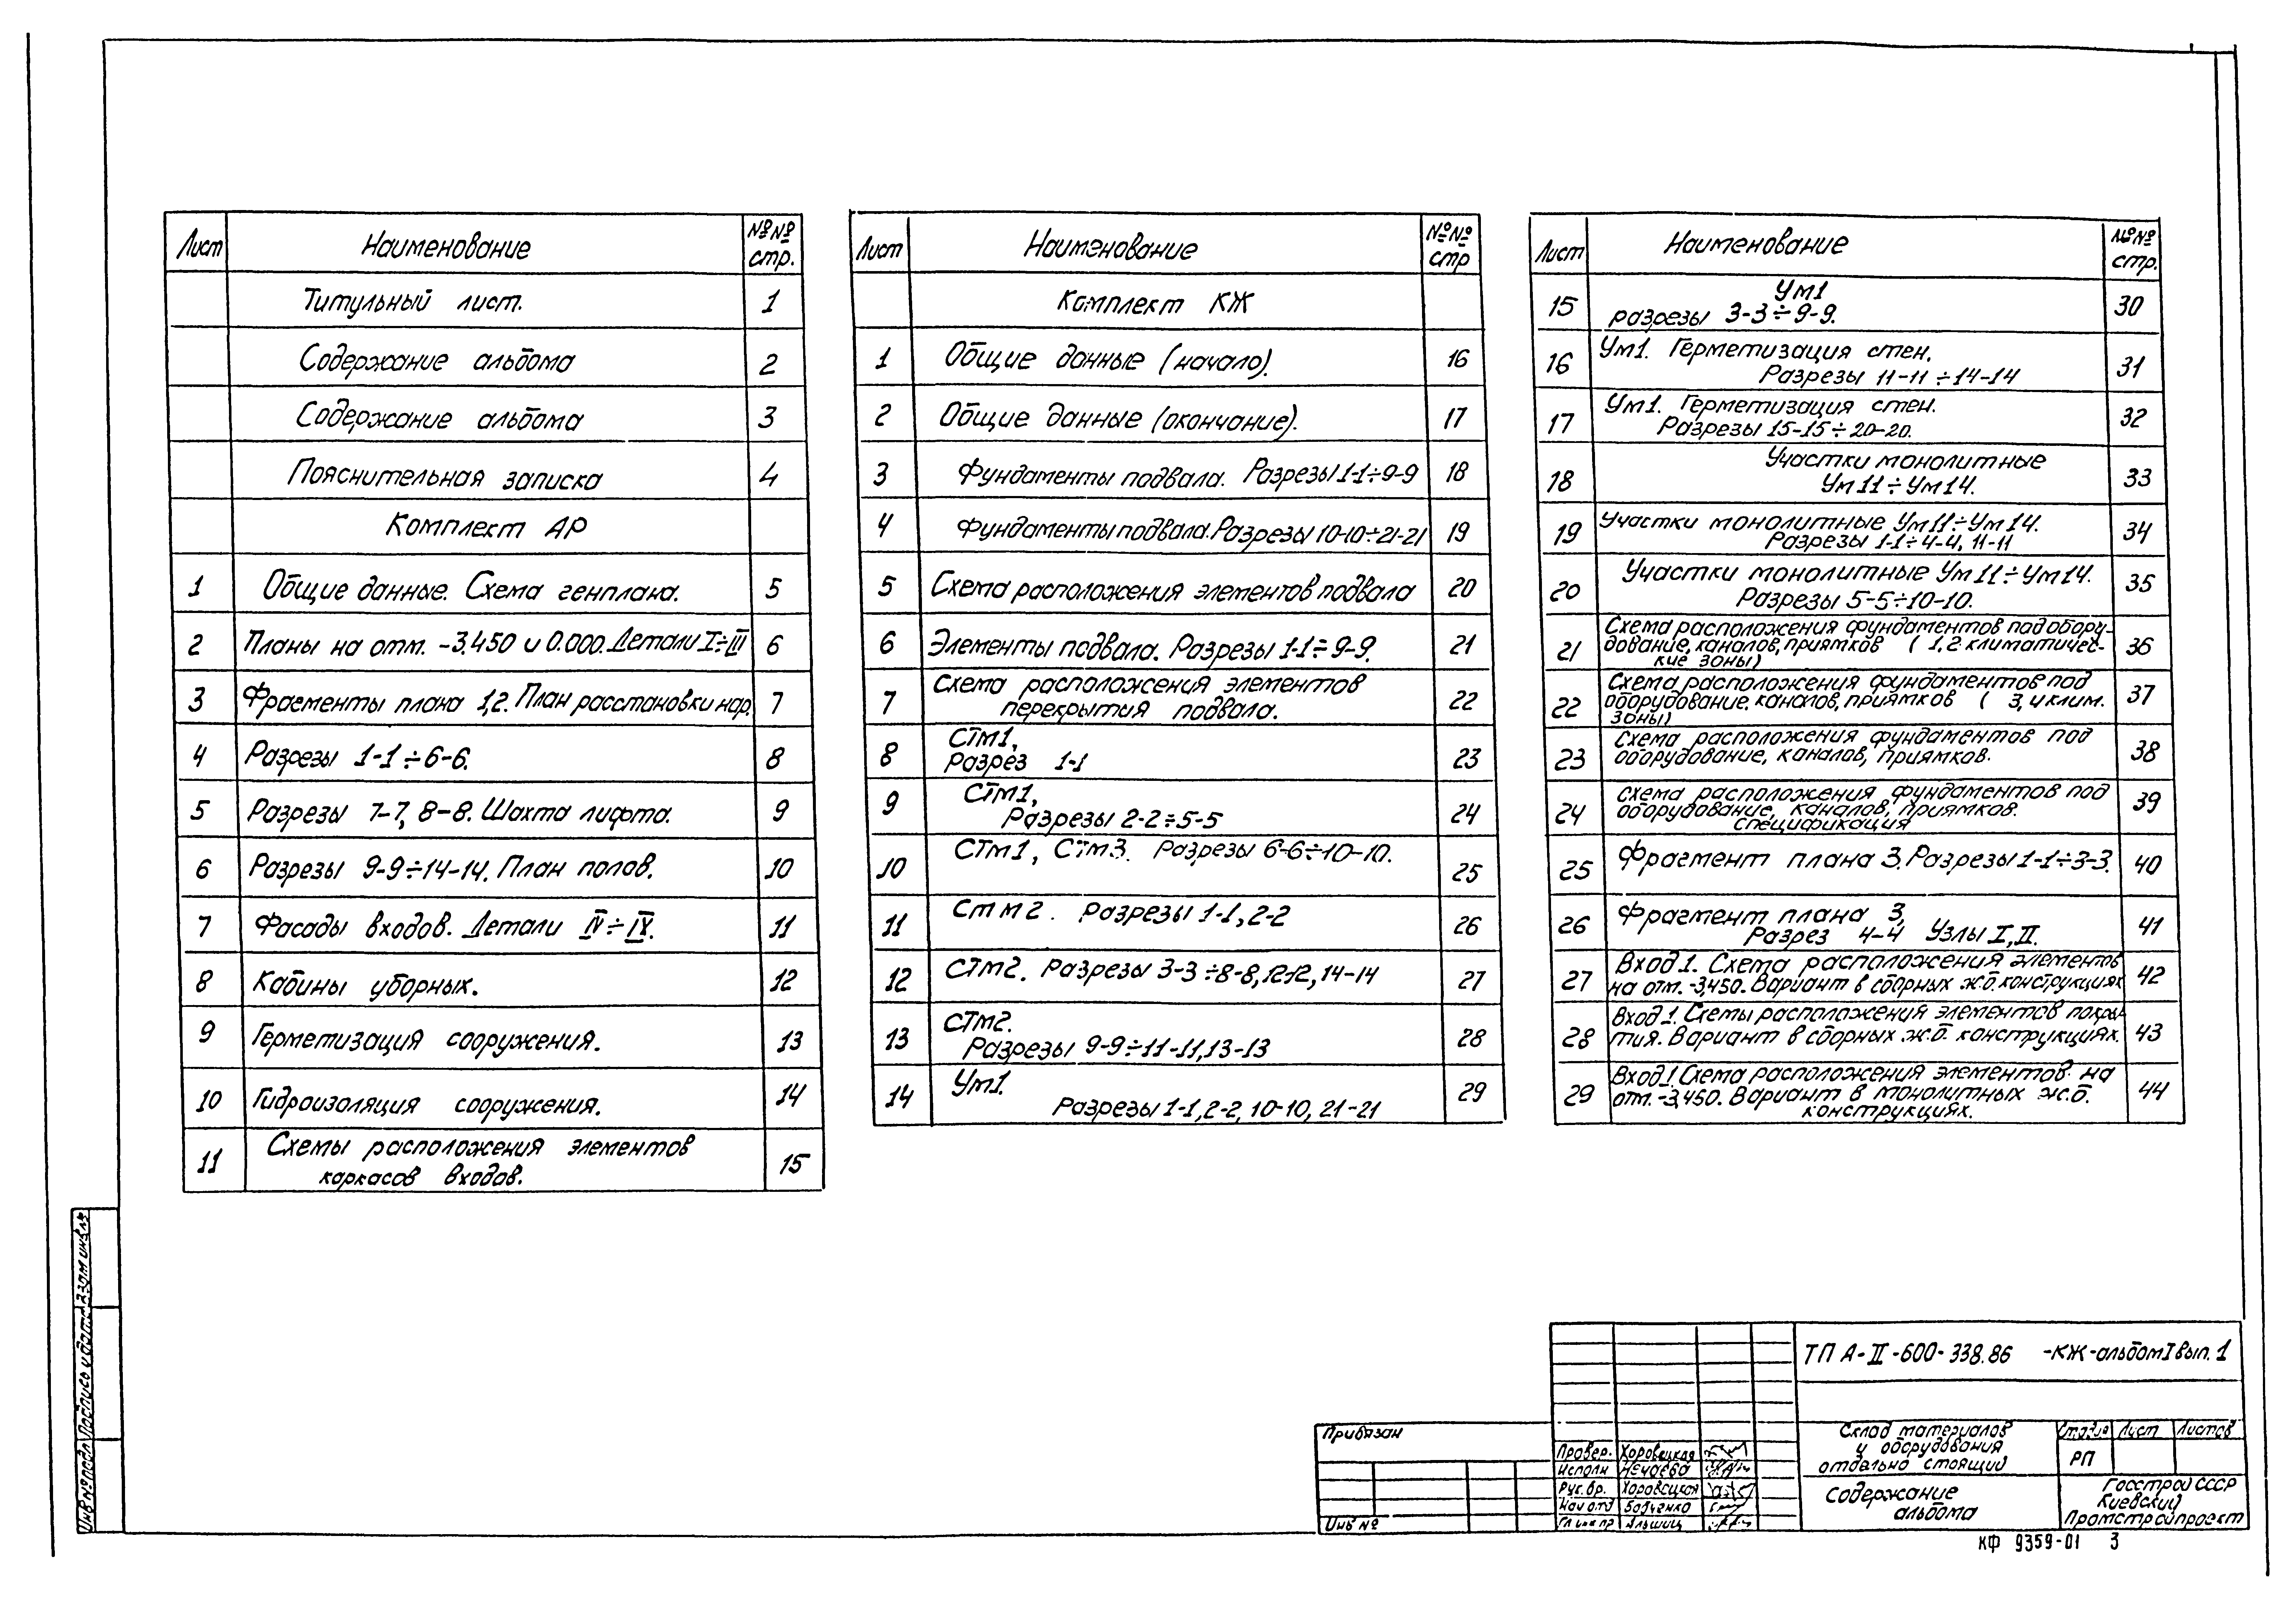 Лист Наименование №№ стр.
Титульный лист. 1
Содержание альбома 2
Содержание альбома 3
Пояснительная записка 4
Комплект АР
1 Общие данные. Схема генплана. 5
2 Планы на отм. -3.450 и 0.000. Детали I÷III 6
3 Фрагменты плана 1,2. План расстановки нар. 7
4 Разрезы 1-1÷6-6. 8
5 Разрезы 7-7, 8-8. Шахта лифта. 9
6 Разрезы 9-9÷14-14. План полов. 10
7 Фасады входов. Детали IV÷IX. 11
8 Кабины уборных. 12
9 Герметизация сооружения. 13
10 Гидроизоляция сооружения. 14
11 Схемы расположения элементов
каркасов входов. 15
Лист Наименование №№ стр
Комплект КЖ
1 Общие данные (начало). 16
2 Общие данные (окончание). 17
3 Фундаменты подвала. Разрезы 1-1÷9-9 18
4 Фундаменты подвала. Разрезы 10-10÷21-21 19
5 Схема расположения элементов подвала 20
6 Элементы подвала. Разрезы 1-1÷9-9. 21
7 Схема расположения элементов
перекрытия подвала. 22
8 СТм1,
Разрез 1-1 23
9 СТм1,
Разрезы 2-2÷5-5 24
10 СТм1, СТм3. Разрезы 6-6÷10-10. 25
11 СТм2. Разрезы 1-1, 2-2 26
12 СТм2. Разрезы 3-3÷8-8, 12-12, 14-14 27
13 СТм2.
Разрезы 9-9÷11-11, 13-13 28
14 Ум1.
Разрезы 1-1, 2-2, 10-10, 21-21 29
Лист Наименование №№ стр.
15 Ум1
разрезы 3-3÷9-9. 30
16 Ум1. Герметизация стен.
Разрезы 11-11÷14-14 31
17 Ум1. Герметизация стен.
Разрезы 15-15÷20-20. 32
18 Участки монолитные
Ум11÷Ум14. 33
19 Участки монолитные Ум11÷Ум14.
Разрезы 1-1÷4-4, 11-11 34
20 Участки монолитные Ум11÷Ум14.
Разрезы 5-5÷10-10. 35
21 Схема расположения фундаментов под обору-
дование, каналов, приямков (1,2 климатичес-
кие зоны) 36
22 Схема расположения фундаментов под
оборудование, каналов, приямков (3,4 клим.
зоны) 37
23 Схема расположения фундаментов под
оборудование, каналов, приямков. 38
24 Схема расположения фундаментов под
оборудование, каналов, приямков.
Спецификация 39
25 Фрагмент плана 3. Разрезы 1-1÷3-3. 40
26 Фрагмент плана 3,
Разрез 4-4 Узлы I, II. 41
27 Вход 1. Схема расположения элементов
на отм. -3,450. Вариант в сборных ж.б. конструкциях 42
28 Вход 1. Схемы расположения элементов покры-
тия. Вариант в сборных ж.б. конструкциях. 43
29 Вход 1. Схема расположения элементов на
отм. -3,450. Вариант в монолитных ж.б.
конструкциях. 44
Инв № подл Подпись и дата Взам инв №
Привязан
Инв №
Провер. Хоровецкая
Исполн Нечаева
Рук. вр. Хоровецкая
Нач отд
Гл инж пр
ТП А-II-600-338.86 -КЖ-альбом I вып. 1
Склад материалов
и оборудования
отдельно стоящий
Стадия Лист Листов
РП
Содержание
альбома
Госстрой СССР
Киевский
Промстройпроект
КФ 9359-01 3